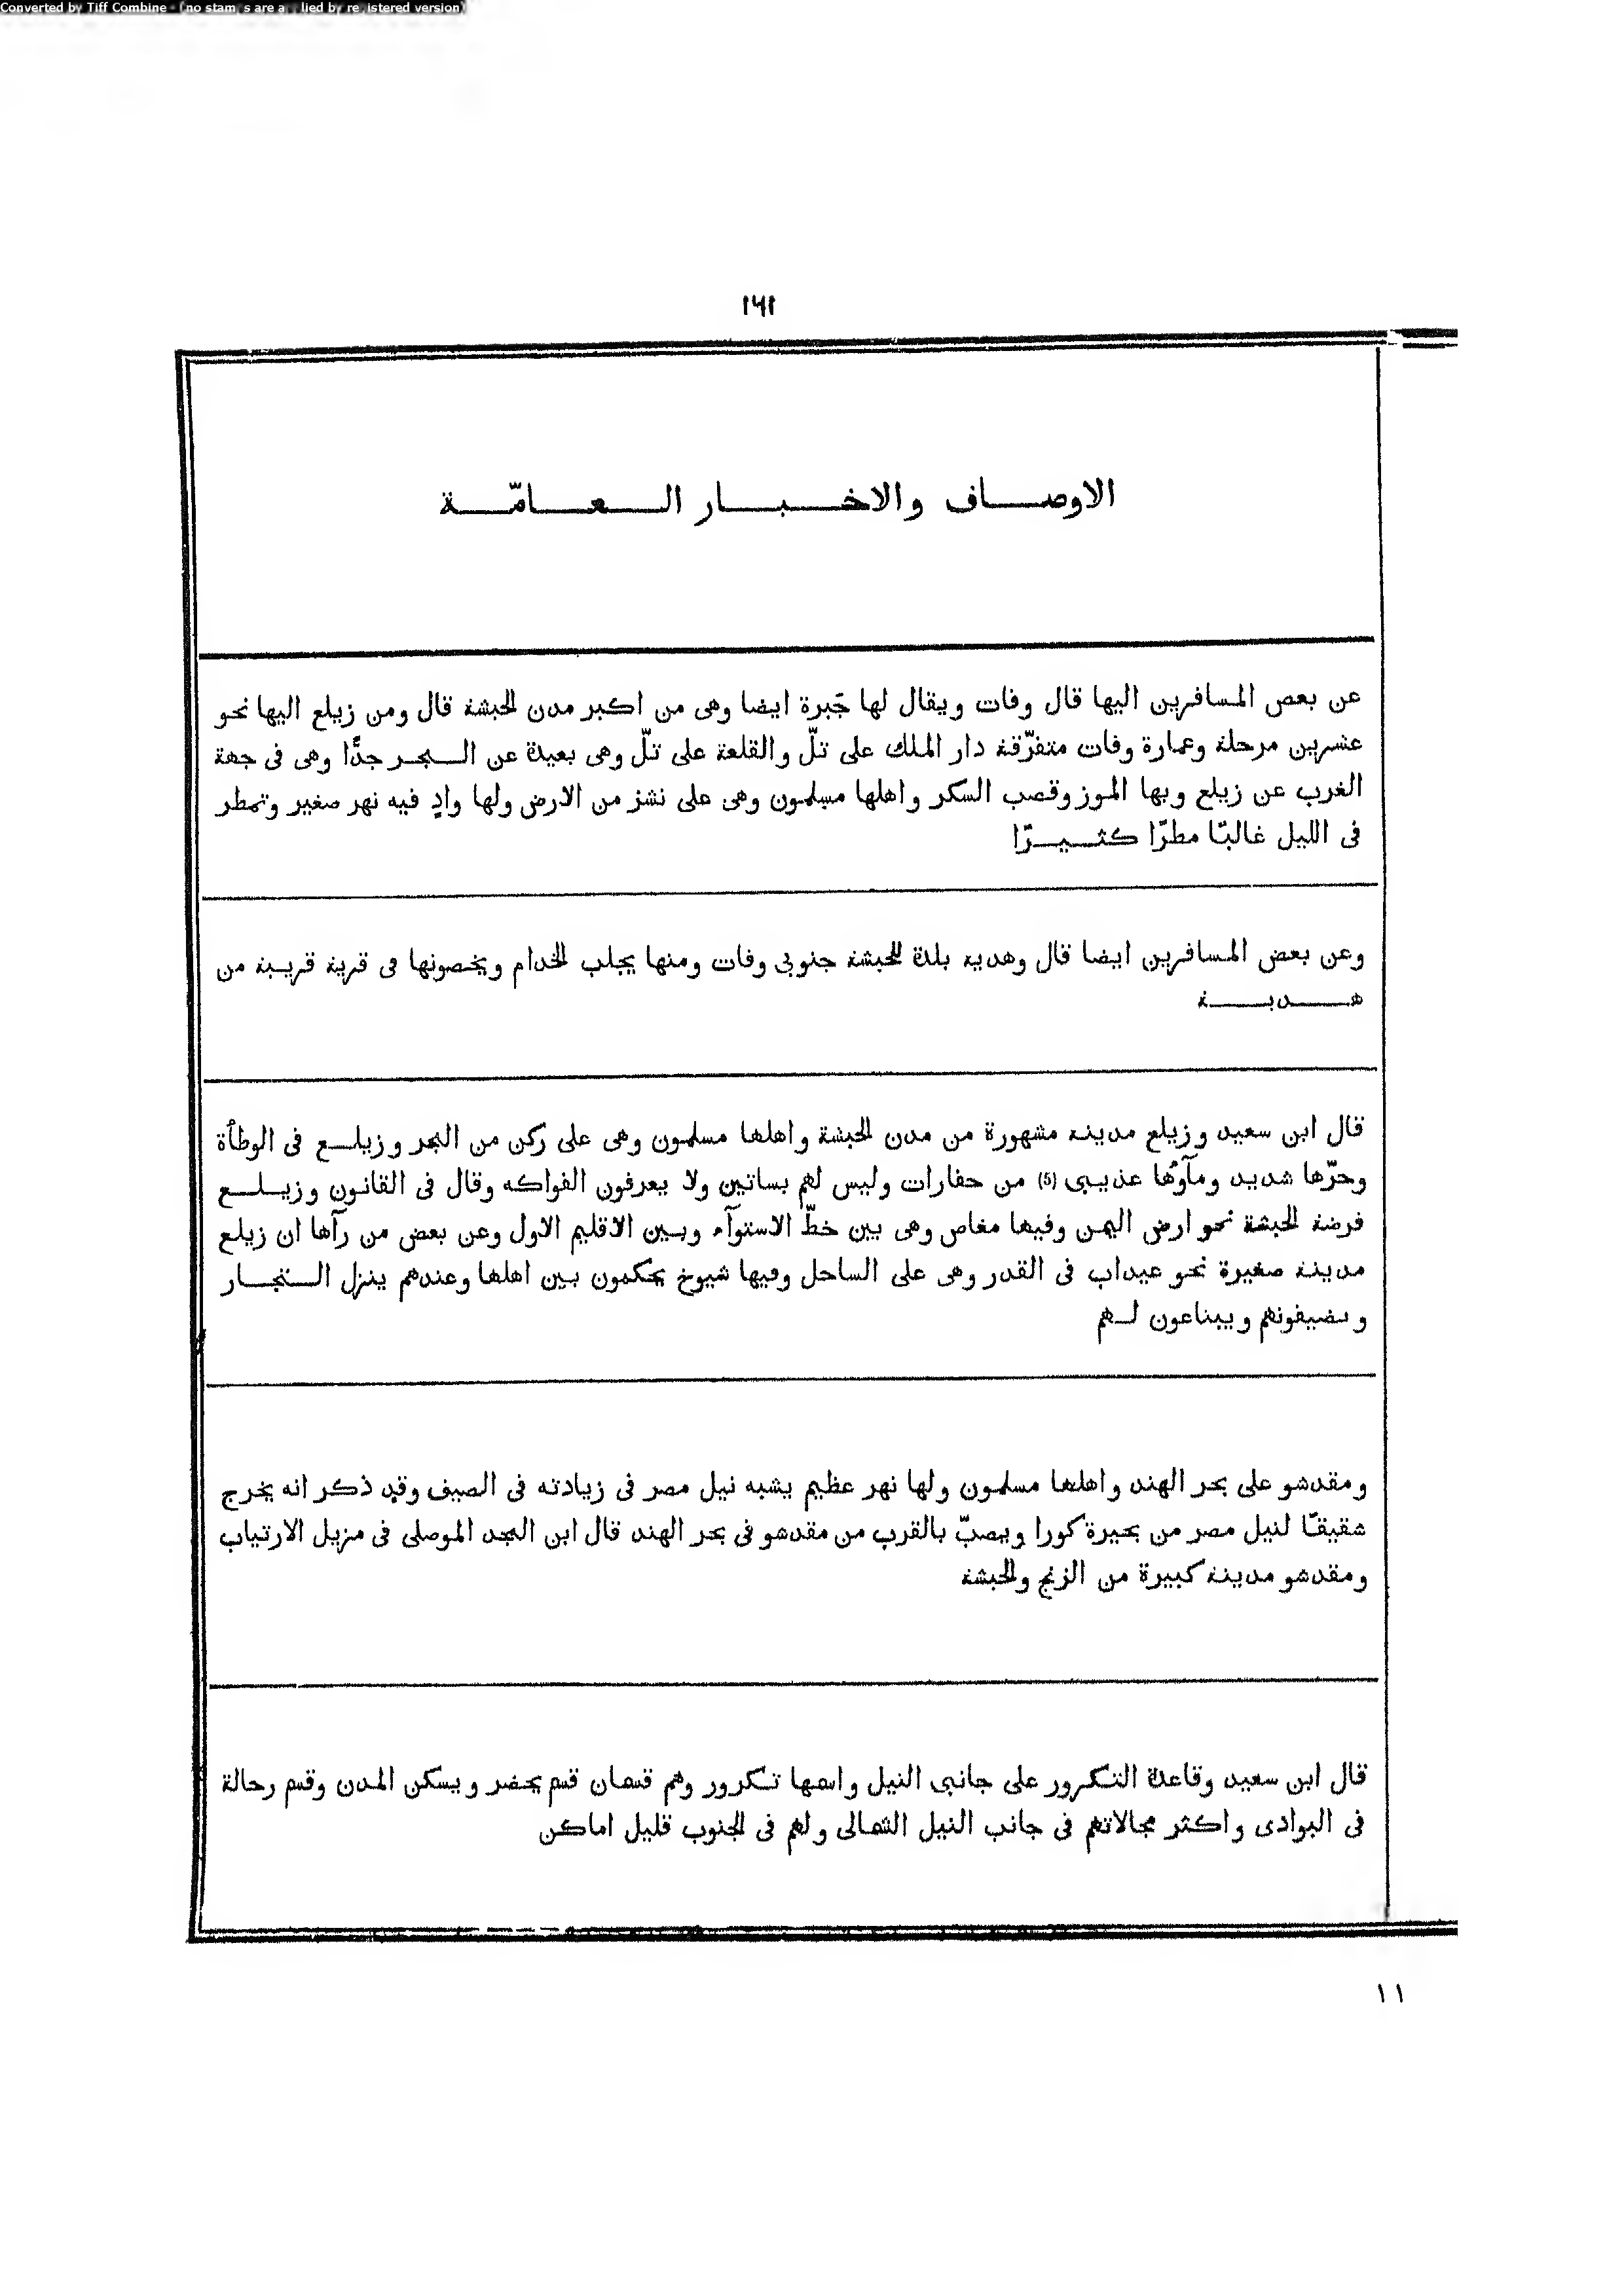 Converted by Tiff Combine - (no stamps are applied by registered version)
١٦١
الاوصاف والاخبار العامّة
عن بعض المسافرين اليها قال وفات ويقال لها جَبرة ايضا وهى من اكبر مدن الحبشة قال ومن زيلع اليها نحو
عشرين مرحلة وعمارة وفات متفرّقة دار الملك على تلّ والقلعة على تلّ وهى بعيدة عن البحر جدًّا وهى فى جهة
الغرب عن زيلع وبها الموز وقصب السكر واهلها مسلمون وهى على نشز من الارض ولها وادٍ فيه نهر صغير وتمطر
فى الليل غالبًا مطرًا كثيرًا
وعن بعض المسافرين ايضا قال وهدية بلدة للحبشة جنوبى وفات ومنها يجلب الخدام ويخصونها فى قرية قريبة من
هدية
قال ابن سعيد وزيلع مدينة مشهورة من مدن الحبشة واهلها مسلمون وهى على ركن من البحر وزيلع فى الوطأة
وحرّها شديد ومآوُها عذيبى (5) من حفارات وليس لهم بساتين ولا يعرفون الفواكه وقال فى القانون وزيلع
فرضة الحبشة نحو ارض اليمن وفيها مغاص وهى بين خطّ الاستوآء وبين الاقليم الاول وعن بعض من رآها ان زيلع
مدينة صغيرة نحو عيداب فى القدر وهى على الساحل وفيها شيوخ يحكمون بين اهلها وعندهم ينزل التجار
ويضيفونهم ويبتاعون لهم
ومقدشو على بحر الهند واهلها مسلمون ولها نهر عظيم يشبه نيل مصر فى زيادته فى الصيف وقد ذكر انه يخرج
شقيقًا لنيل مصر من بحيرة كورا ويصبّ بالقرب من مقدشو فى بحر الهند قال ابن المجد الموصلى فى مزيل الارتياب
ومقدشو مدينة كبيرة من الزنج والحبشة
قال ابن سعيد وقاعدة التكرور على جانبى النيل واسمها تكرور وهم قسمان قسم يحضر ويسكن المدن وقسم رحالة
فى البوادى واكثر مجالاتهم فى جانب النيل الشمالى ولهم فى الجنوب قليل اماكن
١١